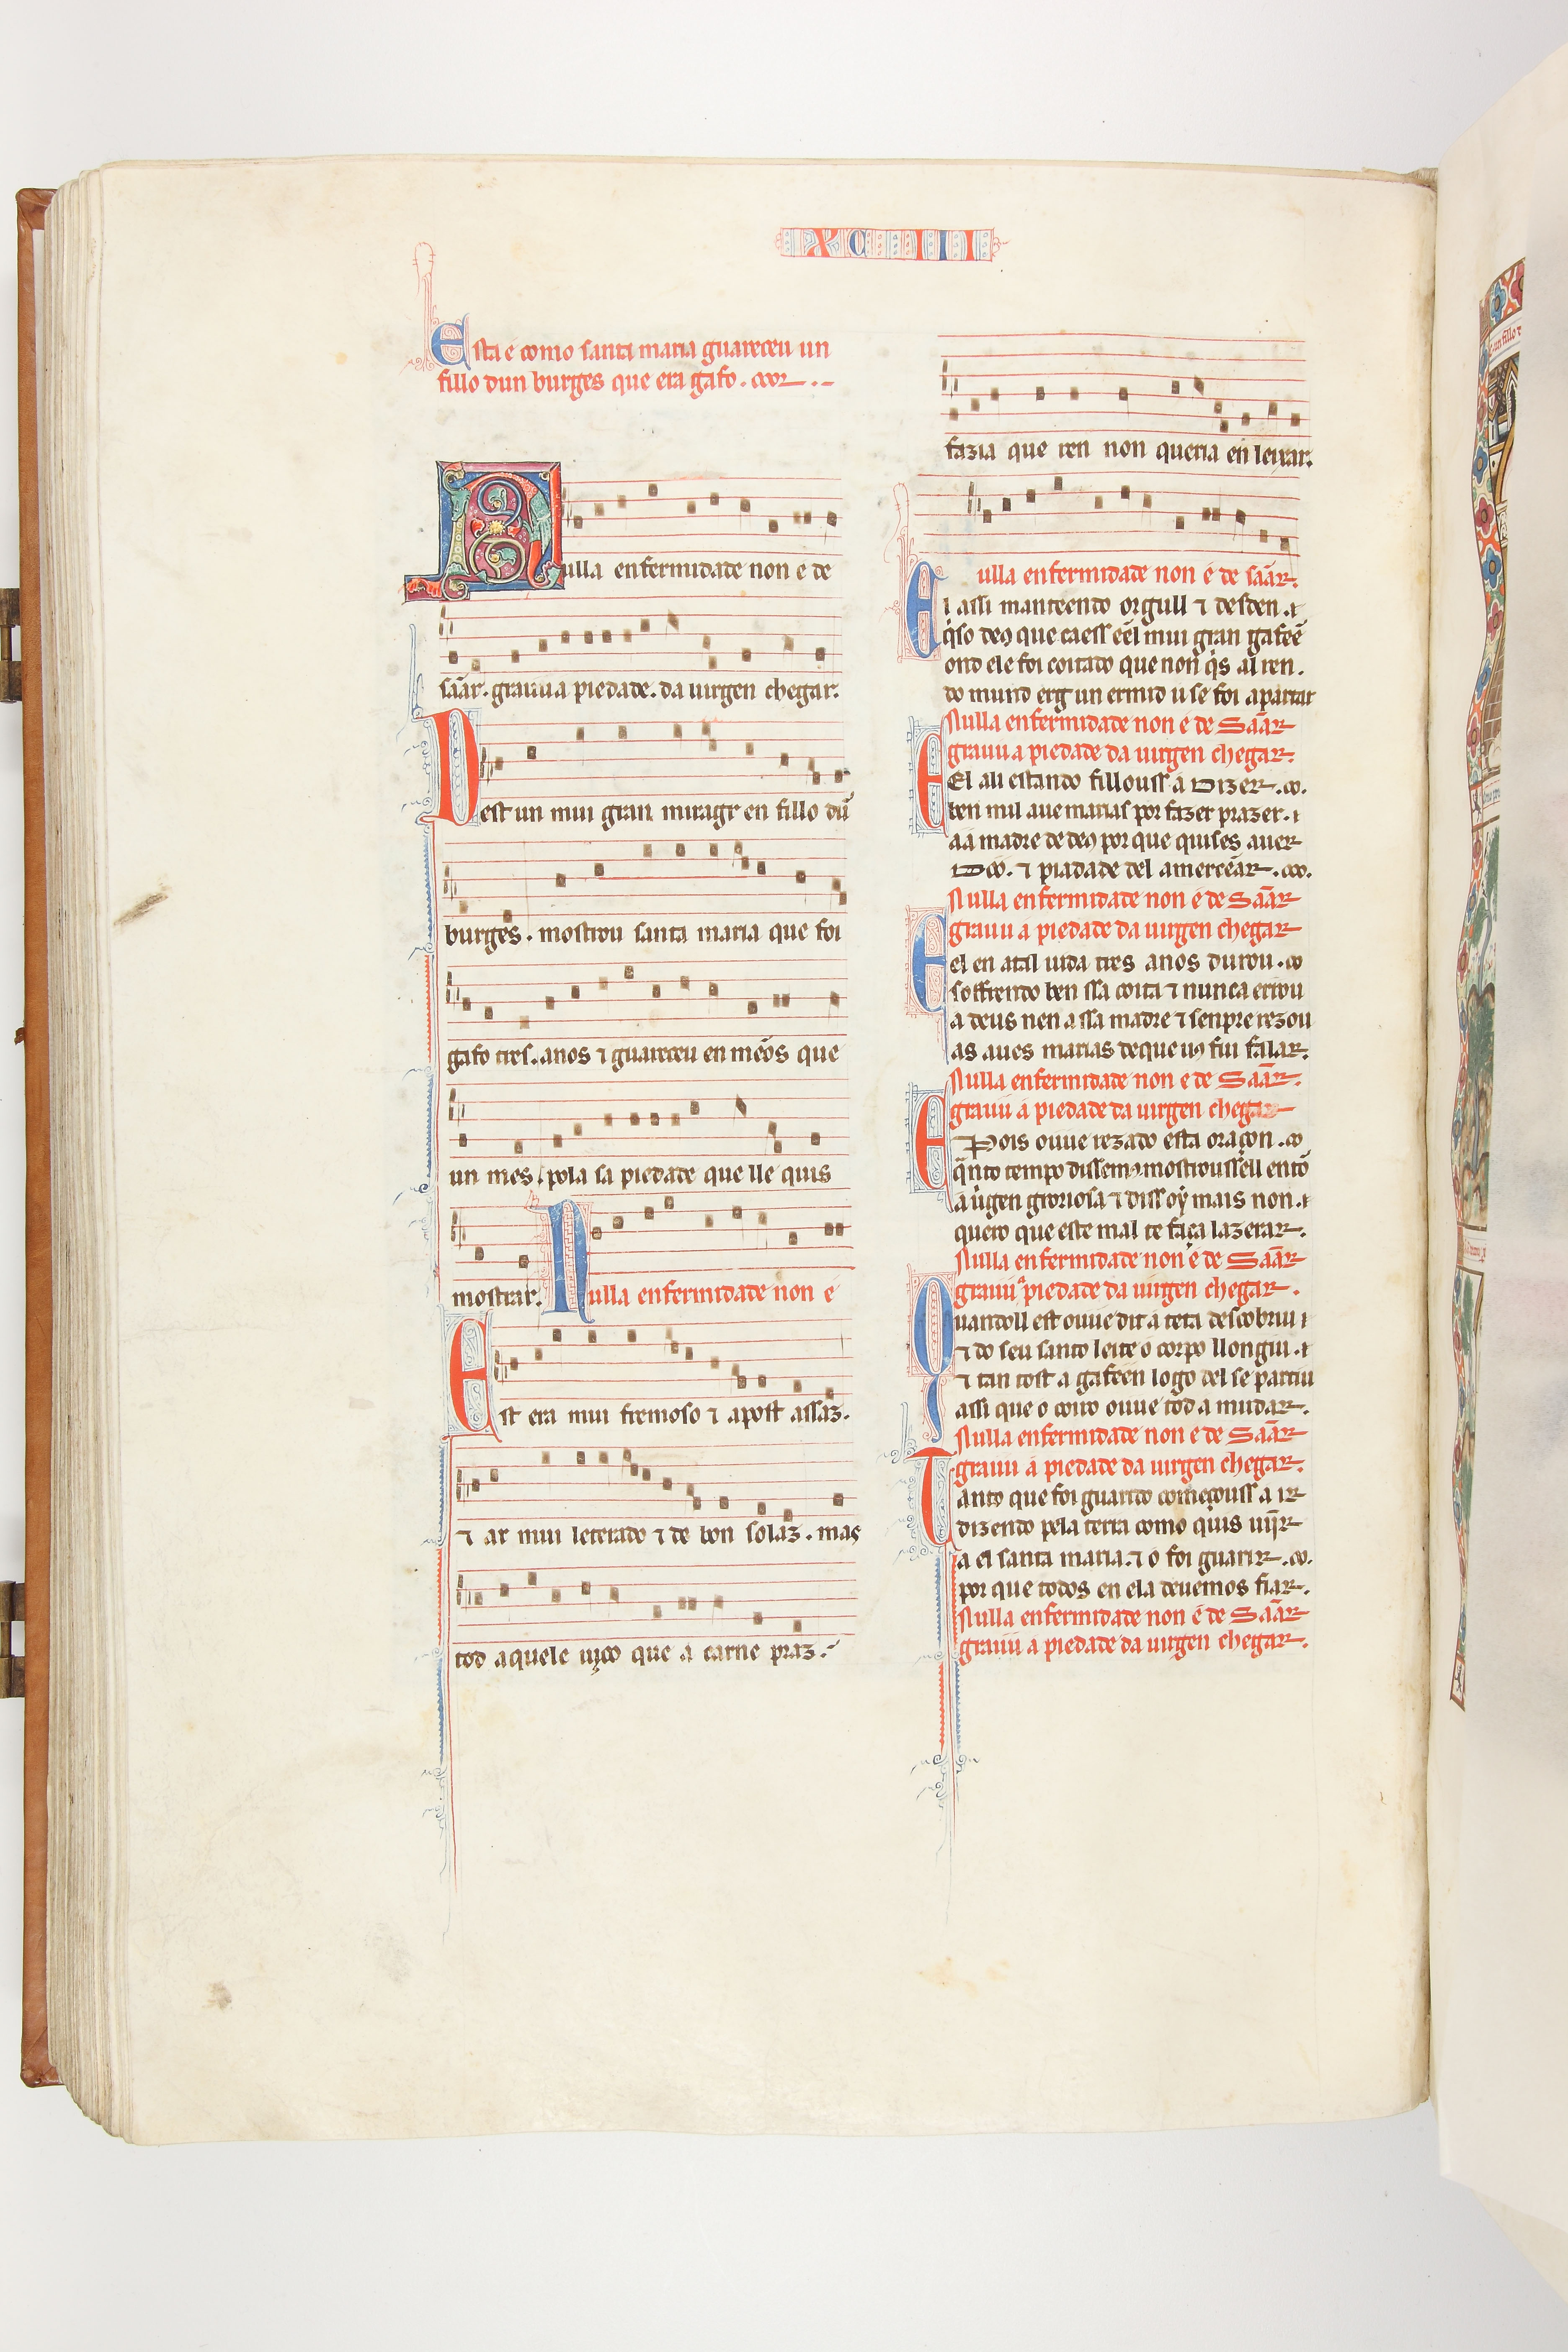 XC III
Esta é como santa maria guareceu un
fillo dun burges que era gafo.
Nulla enfermidade non e de
sãar. grauu a piedade. da uirgen chegar.
Dest un mui gran miragr en fillo dũ
burges. mostrou santa maria que foi
gafo tres. anos ⁊ guareceu en meós que
un mes. pola sa piedade que lle quis
mostrar. Nulla enfermidade non é
Est era mui fremoso ⁊ apost assaz.
⁊ ar mui leterado ⁊ de bon solaz. mas
tod aquele uiço que a carne praz.
fazia que ren non queria en leixar.
ulla enfermidade non é de sãar.
El assi mantendo orgull ⁊ desden.
q̇so deꝯ que caess eel mui gran gafeẽ
ond ele foi coitado que non q̇s al ren.
do mund erg un ermid u se foi apartar
Nulla enfermidade non é de Sãar
grauu a piedade da uirgen chegar.
El ali estando fillouss a Dizer.
ben mil auemarias por fazer prazer.
aá madre de deꝯ por que quises auer
Doo. ⁊ piadade del amercẽar.
Nulla enfermidade non é de Sãar
grauu a piedade da uirgen chegar
El en atal uida tres anos durou.
soffrendo ben ssa coita ⁊ nunca errou
a deus nen a ssa madre ⁊ senpre rezou
as aues marias deque uꝯ fui falar.
Nulla enfermidade non e de Sãar.
grauu a piedade da uirgen chegar
E Pois ouue rezado esta oraçon.
q̃nto tempo dissemꝯ mostrouss ell entõ
a uirgen groriosa ⁊ diss oỹ mais non.
quero que este mal te faça lazerar.
Nulla enfermidade non é de Sãar
grauu a piedade da uirgen chegar.
Quandoll est ouue dit a teta descobriu
⁊ do seu santo leite o corpo ll ongiu.
⁊ tan tost a gafeen logo del se partiu
assi que o coiro ouue tod a mudar.
Nulla enfermidade non e de Sãar
grauu a piedade da uirgen chegar.
Tanto que foi guarido começouss a ir
dizendo pela terra como quis uĩir
a el santa maria. ⁊ o foi guarir.
por que todos en ela deuemos fiar.
Nulla enfermidade non é de Sãar
grauu a piedade da uirgen chegar.